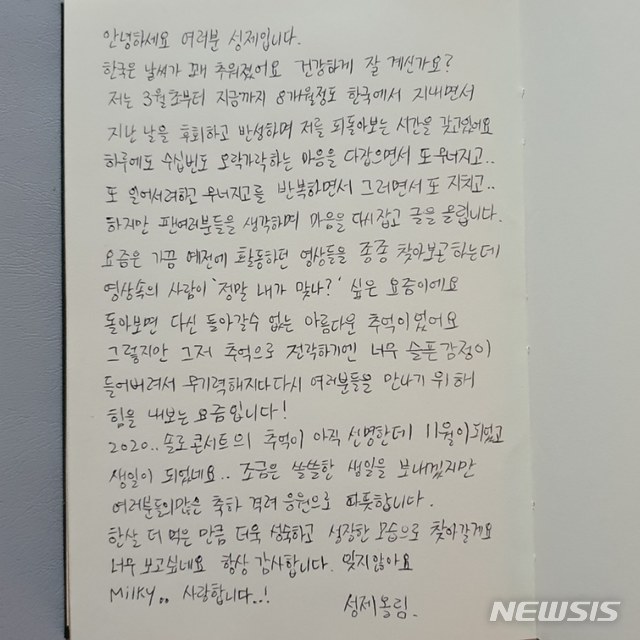 안녕하세요 여러분 성제입니다.
한국은 날씨가 꽤 추워졌어요 건강하게 잘 계신가요?
저는 3월초부터 지금까지 8개월정도 한국에서 지내면서
지난 날을 후회하고 반성하며 저를 되돌아보는 시간을 갖고있어요
하루에도 수십번도 오락가락하는 마음을 다잡으면서 또 무너지고..
또 일어서려하고 무너지고를 반복하면서 그러면서 또 지치고..
하지만 팬여러분들을 생각하며 마음을 다시잡고 글을 올립니다.
요즘은 가끔 예전에 활동하던 영상들을 종종 찾아보곤하는데
영상속의 사람이 '정말 내가 맞나?' 싶은 요즘이에요
돌아보면 다신 돌아갈수 없는 아름다운 추억이었어요
그렇지만 그저 추억으로 전락하기엔 너무 슬픈감정이
들어버려서 무기력해지다 다시 여러분들을 만나기 위해
힘을 내보는 요즘입니다!
2020.. 솔로콘서트의 추억이 아직 선명한데 11월이되었고
생일이 되었네요.. 조금은 쓸쓸한 생일을 보내겠지만
여러분들의많은 축하 격려 응원으로 따뜻합니다.
한살 더 먹은 만큼 더욱 성숙하고 성장한 모습으로 찾아갈게요
너무 보고싶네요 항상 감사합니다. 잊지않아요
Milky.. 사랑합니다..!
성제올림.
NEWSIS